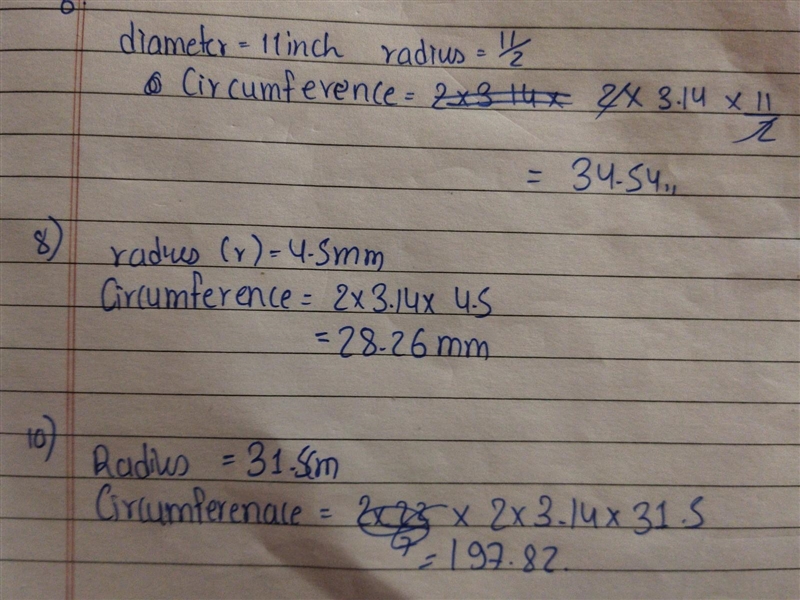 diameter = 11 inch radius = 11/2
Circumference = 2 x 3.14 x 2 x 3.14 x 11/2
= 34.54,,
8) radius (r) = 4.5mm
Circumference = 2 x 3.14 x 4.5
= 28.26 mm
10) Radius = 31.5m
Circumferenace = 2 x 22/7 x 2 x 3.14 x 31.5
= 197.82.